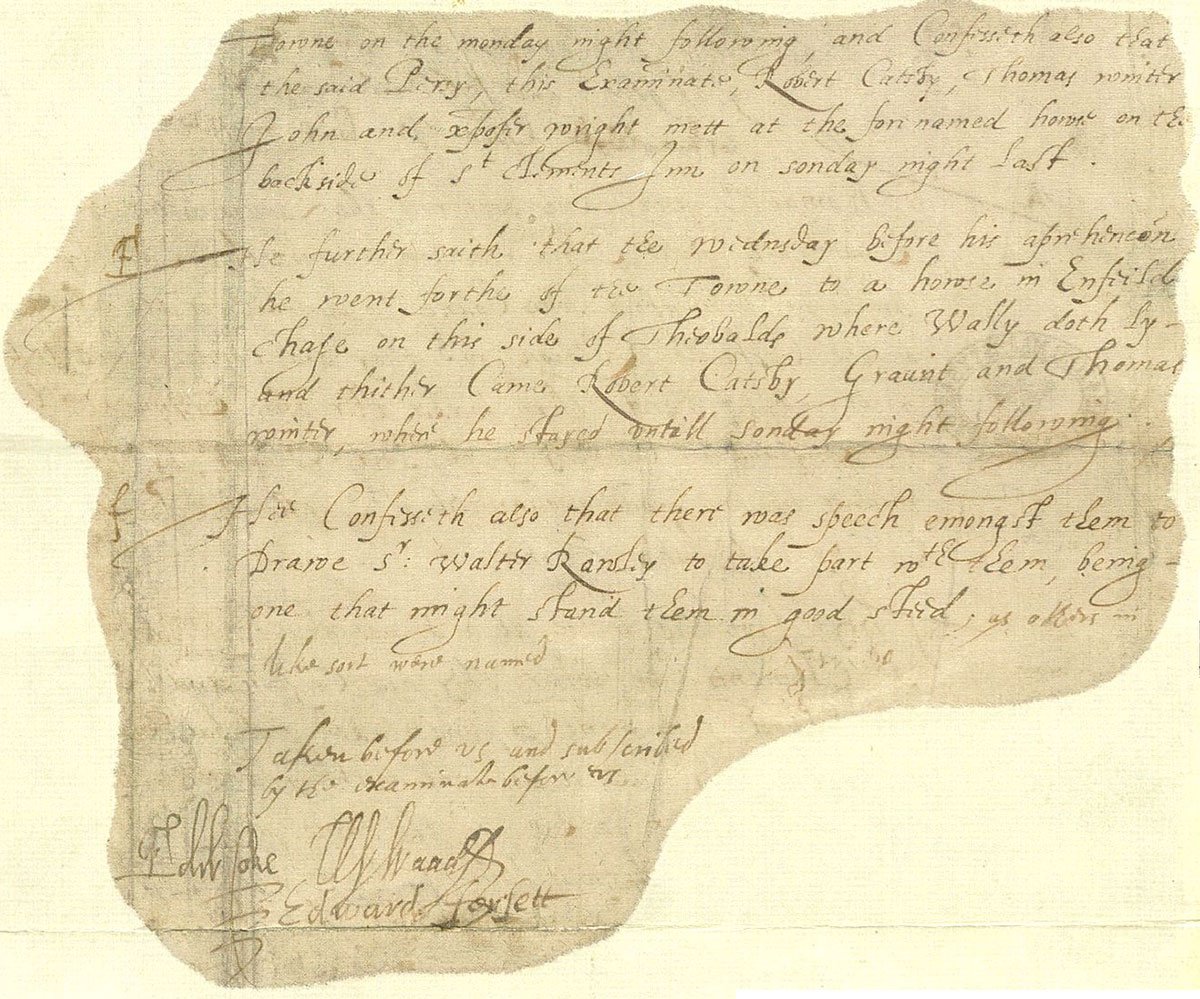 Towne on the monday night following, and Confesseth also that
the said Percy, this Examinate, Robert Catsby, Thomas winter
John and xpofer wright mett at the forenamed howse on the
backside of St Clements Inn on sonday night last.
He further saith that the wednsday before his aprehencon
he went forthe of the Towne to a howse in Enfeild
chase on this side of Theobalds where Wally doth ly-
and thither Came Robert Catsby, Graunt and Thomas
winter, where he stayed untill sonday night following.
Hee Confesseth also that there was speech emongst them to
Drawe Sr: Walter Rawley to take part wth them, being-
one that might stand them in good steed, as others in
like sort were named
Taken before us and subscribed
by the examinate before us
Edw Coke W Waad
Edward fforsett